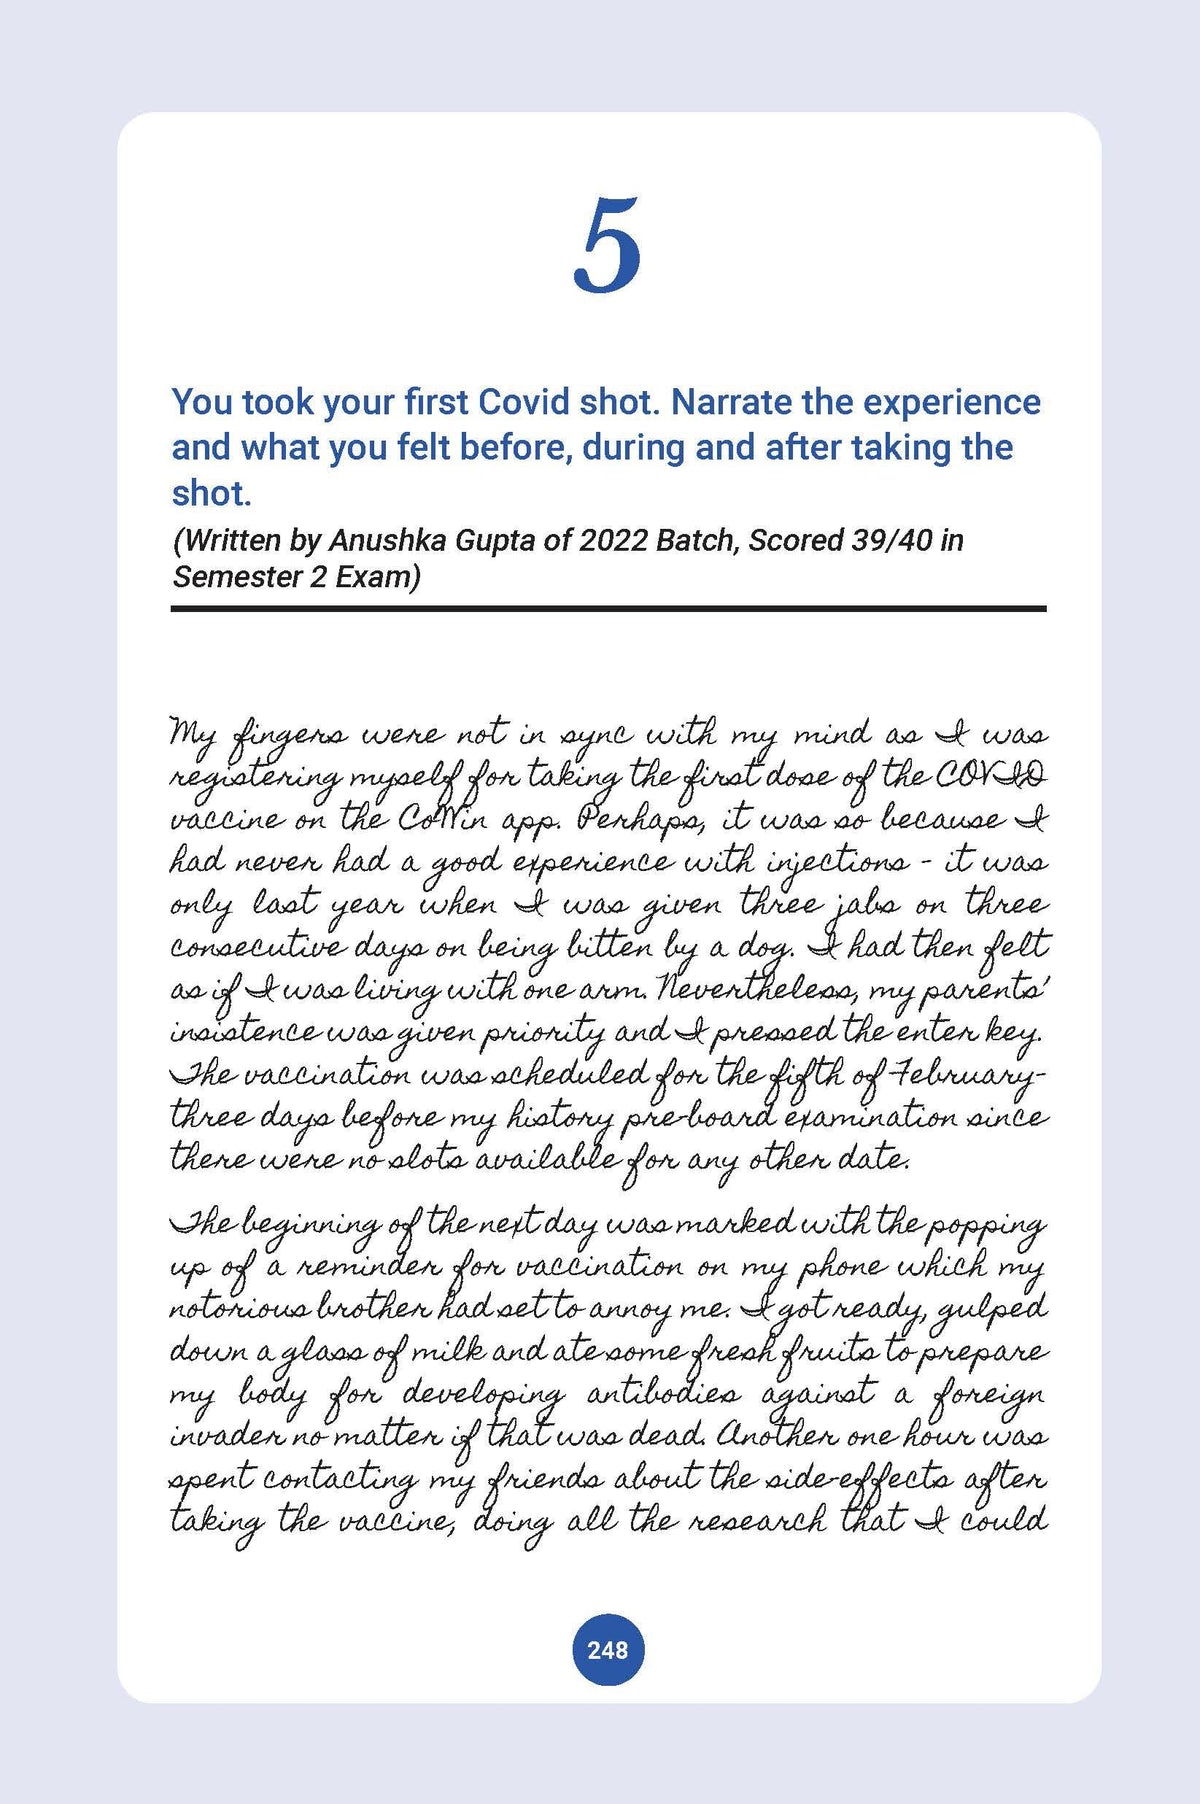 5
You took your first Covid shot. Narrate the experience
and what you felt before, during and after taking the
shot.
(Written by Anushka Gupta of 2022 Batch, Scored 39/40 in
Semester 2 Exam)
My fingers were not in sync with my mind as I was
registering myself for taking the first dose of the COVID
vaccine on the CoWin app. Perhaps, it was so because I
had never had a good experience with injections - it was
only last year when I was given three jabs on three
consecutive days on being bitten by a dog. I had then felt
as if I was living with one arm. Nevertheless, my parents'
insistence was given priority and I pressed the enter key.
The vaccination was scheduled for the fifth of February-
three days before my history pre-board examination since
there were no slots available for any other date.
The beginning of the next day was marked with the popping
up of a reminder for vaccination on my phone which my
notorious brother had set to annoy me. I got ready, gulped
down a glass of milk and ate some fresh fruits to prepare
my body for developing antibodies against a foreign
invader no matter if that was dead. Another one hour was
spent contacting my friends about the side-effects after
taking the vaccine, doing all the research that I could
248